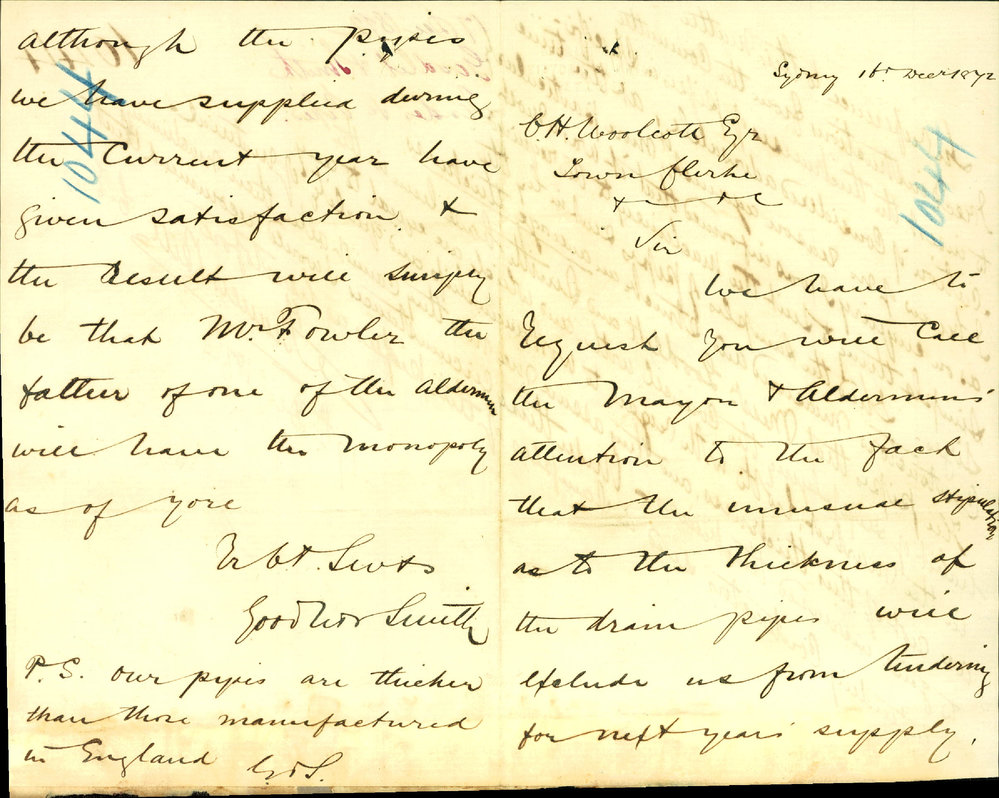 Sydney 16 Decr 1872
C.H. Woolcott Eqr
Town Clerke
&c &c
Sir
We have to
Request you will Call
the Mayor & Aldermens
attention to the fact
that the unusual stipulation
as to the thickness of
the drain pipes will
exclude us from tendering
for next years supply,
1044
although the pipes
we have supplied during
the Current year have
given satisfaction &
the Result will simply
be that Mr Fowler the
father of one of the Aldermen
will have the monopoly
as of yore
Yr Obt. Servts
Goodlet & Smith
P.S. our pipes are thicker
than those manufactured
in England G&S.
1044